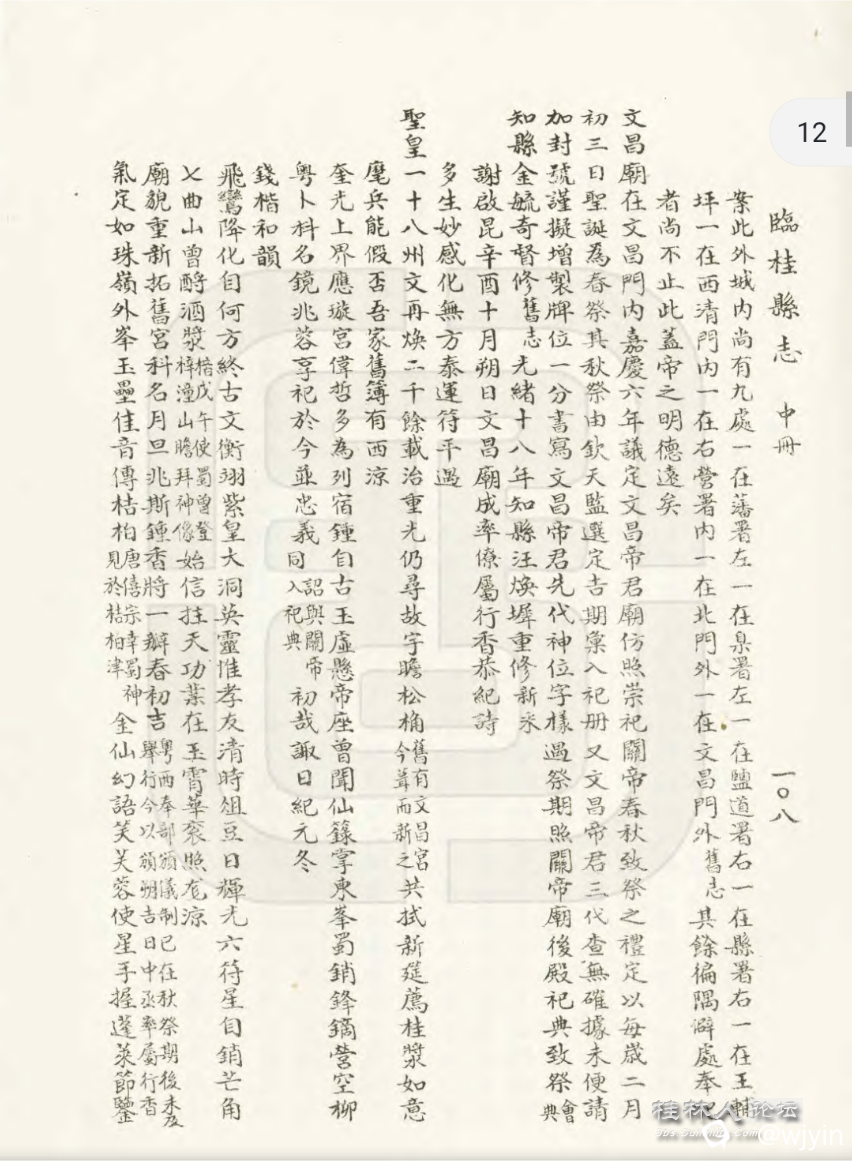 12
臨桂縣志 中冊 一〇八
案此外城內尚有九處一在藩署左一在臬署左一在鹽道署右一在縣署右一在王輔
坪一在西清門內一在右營署內一在北門外一在文昌門外舊志其餘徧隅僻處奉祀
者尚不止此蓋帝之明德遠矣
文昌廟在文昌門內嘉慶六年議定文昌帝君廟仿照崇祀關帝春秋致祭之禮定以每歲二月
初三日聖誕為春祭其秋祭由欽天監選定吉期彙入祀冊又文昌帝君三代查無確據未便請
加封號謹擬增製牌位一分書寫文昌帝君先代神位字樣過祭期照關帝廟後殿祀典致祭會典
知縣金毓奇督修舊志光緒十八年知縣汪煥墀重修新采
謝啟昆辛酉十月朔日文昌廟成率僚屬行香恭紀詩
多生妙感化無方泰運符平遇
聖皇一十八州文再煥二千餘載治重光仍尋故宇瞻松桷舊有文昌宮今葺而新之共拭新筵薦桂漿如意
麾兵能假否吾家舊簿有西涼
奎光上界應璇宮偉哲多為列宿鍾自古玉虛懸帝座曾聞仙籙掌東峯蜀銷鋒鏑營空柳
粵卜科名鏡兆蓉享祀於今並忠義詔與關帝同入祀典初哉諏日紀元冬
錢楷和韻
飛鸞降化自何方終古文衡翊紫皇大洞英靈惟孝友清時俎豆日輝光六符星自銷芒角
七曲山曾酹酒漿楷戊午使蜀曾登梓潼山瞻拜神像始信拄天功業在玉霄華袞照庬涼
廟貌重新拓舊宮科名月旦兆斯鍾香將一瓣春初吉粵西奉部頒儀制已在秋祭期後未及舉行今以頒朔吉日中丞率屬行香
氣定如珠嶺外峯玉壘佳音傳桔柏唐僖宗幸蜀神見於桔柏津金仙幻語笑芙蓉使星手握蓬萊節鑒
桂林人论坛
@wjyin